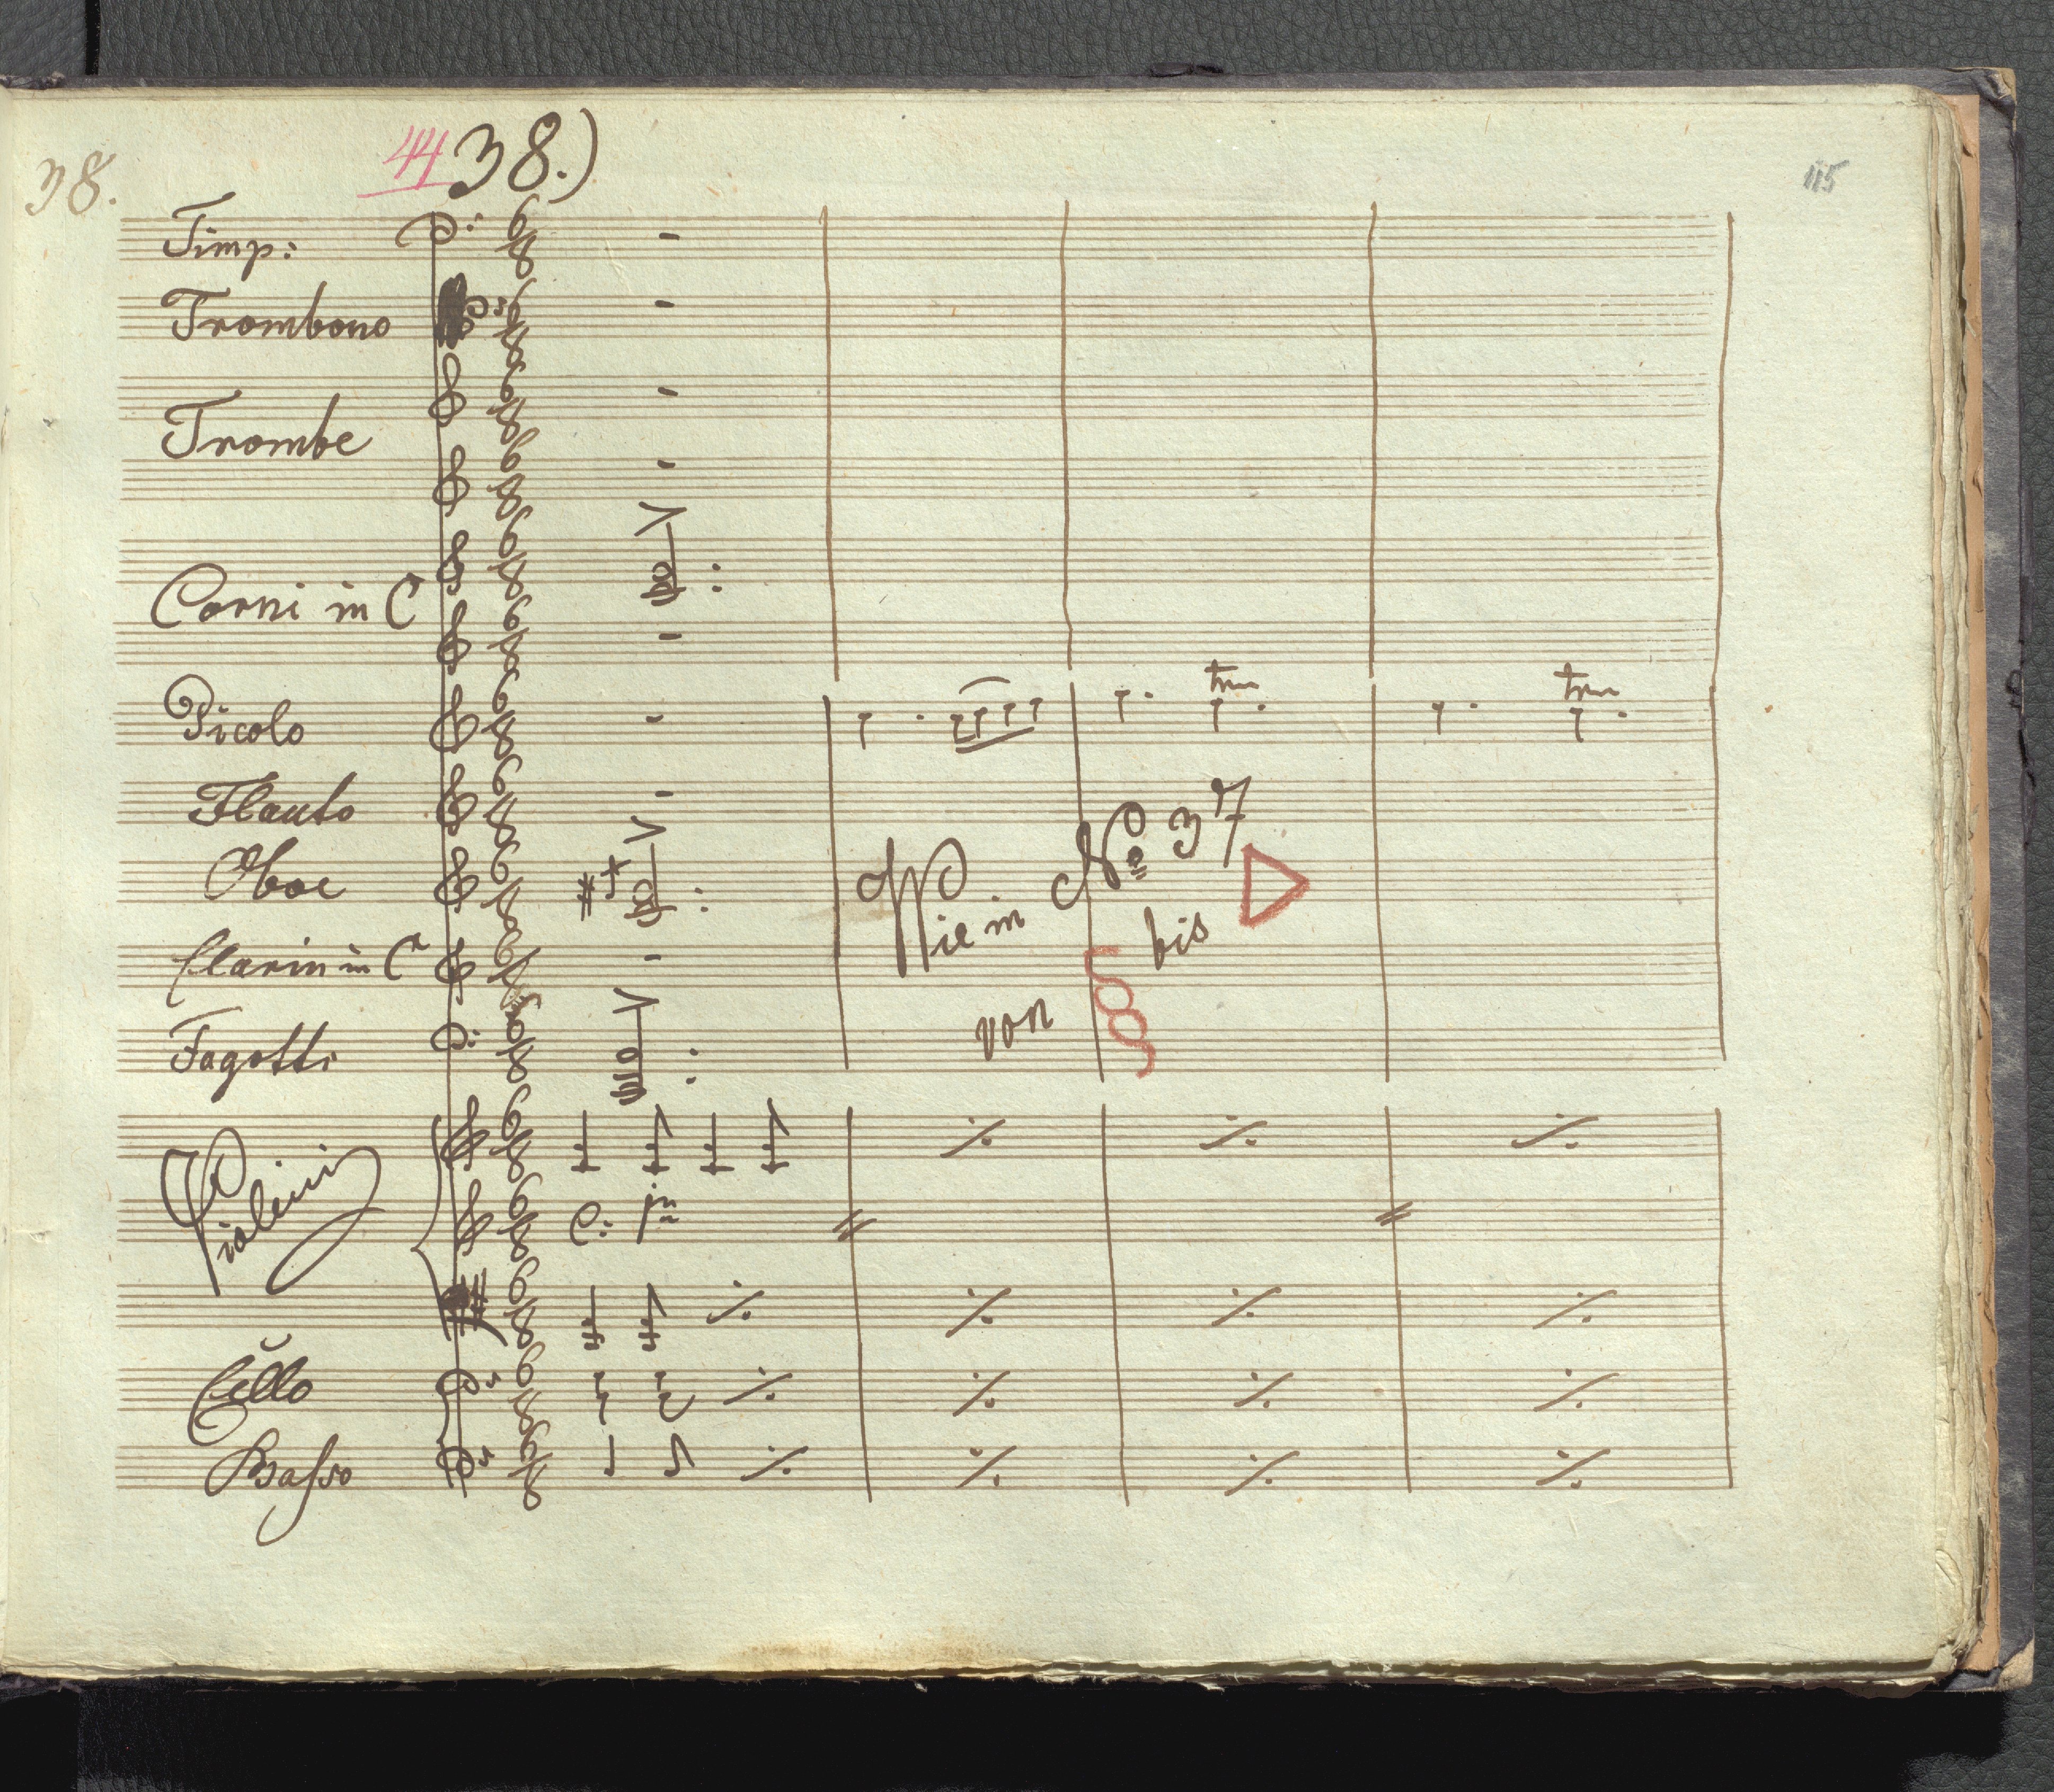 38. 44 38.) 115
Timp:
Trombono
Trombe
Corni in C
Picolo
tr tr
Flauto
Oboe
Wie in No 37
von bis
Clarin in C
Fagotti
Violini
C: jmo
Cello
Basso